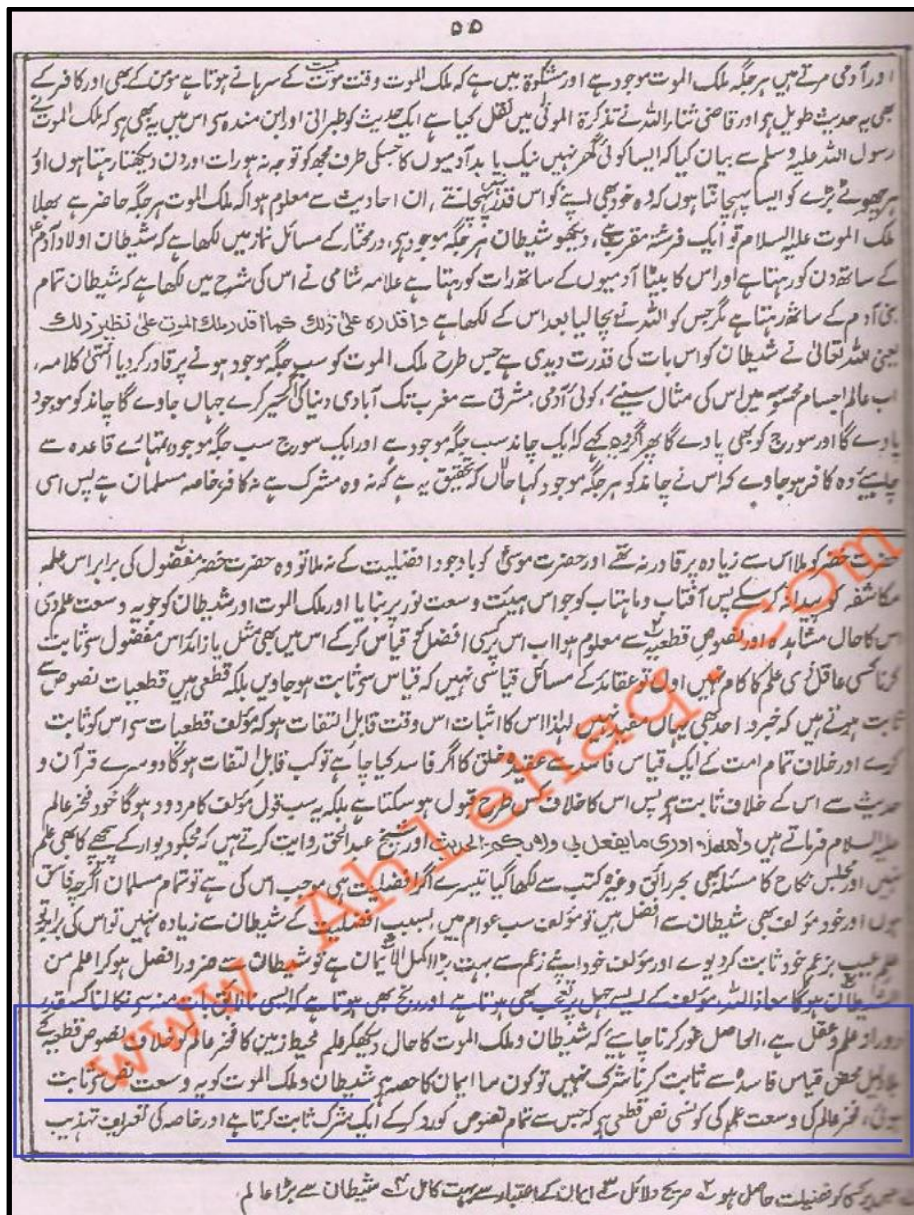 ۵۵
اور آدمی مرتے ہیں ہر جگہ ملک الموت موجود ہے اور مشکوٰۃ میں ہے کہ ملک الموت وقت موت میت کے سرہانے ہوتا ہے مؤمن کے بھی اور کافر کے
بھی یہ حدیث طویل ہو اور قاضی ثناء اللہ نے تذکرۃ الموتیٰ میں نقل کیا ہے ایک حدیث کو طبرانی اور ابن مندہ سی اس میں یہ بھی ہو کہ ملک الموت نے
رسول اللہ علیہ وسلم سے بیان کیا کہ ایسا کوئی گھر نہیں نیک یا بد آدمیوں کا جسکی طرف مجھ کو توجہ نہ ہو رات اور دن دیکھتا رہتا ہوں اور
ہر چھوٹے بڑے کو ایسا پہچانتا ہوں کہ وہ خود بھی اپنے کو اس قدر نہیں پہچانتے ، ان احادیث سے معلوم ہوا کہ ملک الموت ہر جگہ حاضر ہے بھلا
ملک الموت علیہ السلام تو ایک فرشتہ مقرب ہے ، دیکھو شیطان ہر جگہ موجود ہی ، در مختار کے مسائل نماز میں لکھا ہے کہ شیطان اولاد آدم
کے ساتھ دن کو رہتا ہے اور اس کا بیٹا آدمیوں کے ساتھ رات کو رہتا ہے علامہ شامی نے اس کی شرح میں لکھا ہے کہ شیطان تمام
بنی آدم کے ساتھ رہتا ہے مگر جس کو اللہ نے بچا لیا بعد اس کے لکھا ہے واقدرہ علیٰ ذلک کما اقدر ملک الموت علیٰ نظیر ذلک
یعنی اللہ تعالیٰ نے شیطان کو اس بات کی قدرت دیدی ہے جس طرح ملک الموت کو سب جگہ موجود ہونے پر قادر کر دیا انتہیٰ کلامہ ،
اب عالم اجسام محسوسہ میں اس کی مثال سنیئے ، کوئی آدمی مشرق سے مغرب تک آبادی دنیا کی سیر کرے جہاں جاوے گا چاند کو موجود
پاوے گا اور سورج کو بھی پاوے گا پھر اگر وہ کہے کہ ایک چاند سب جگہ موجود ہے اور ایک سورج سب جگہ موجود ، تمہارے قاعدہ سے
چاہیئے وہ کافر ہو جاوے کہ اس نے چاند کو ہر جگہ موجود کہا حالاں کہ تحقیق یہ ہے کہ نہ وہ مشرک ہے نہ کافر ، خاصہ مسلمان ہے پس اسی
حضرت خضر کو ملا اس سے زیادہ پر قادر نہ تھے اور حضرت موسیٰ کو باوجود افضلیت کے نہ ملا تو وہ حضرت خضر مفضول کی برابر اس علم
مکاشفہ کو پیدا نہ کر سکے پس آفتاب و ماہتاب کو جو اس ہیئت وسعت نور پر بنایا اور ملک الموت اور شیطان کو جو یہ وسعت علم دی
اس کا حال مشاہدہ اور نصوص قطعیہ سے معلوم ہوا اب اس پر کسی افضل کو قیاس کر کے اس میں بھی مثل یا زائد اس مفضول سی ثابت
کرنا کسی عاقل ذی علم کا کام نہیں اول تو عقائد کے مسائل قیاسی نہیں کہ قیاس سی ثابت ہو جاویں بلکہ قطعی ہیں قطعیات نصوص سے
ثابت ہوتے ہیں کہ خبر واحد بھی یہاں مفید نہیں لہٰذا اس کا اثبات اس وقت قابل التفات ہو کہ مؤلف قطعیات سی اس کو ثابت
کرے اور خلاف تمام امت کے ایک قیاس فاسد سے عقیدہ خلق کا اگر فاسد کیا چاہے تو کب قابل التفات ہوگا دوسرے قرآن و
حدیث سے اس کے خلاف ثابت ہو پس اس کا خلاف کس طرح قبول ہو سکتا ہے بلکہ یہ سب قول مؤلف کا مردود ہوگا خود فخر عالم
علیہ السلام فرماتے ہیں واللہ لا ادری ما یفعل بی ولا بکم الحدیث اور شیخ عبد الحق روایت کرتے ہیں کہ مجکو دیوار کے پیچھے کا بھی علم
نہیں اور مجلس نکاح کا مسئلہ بھی بحر رائق وغیرہ کتب سے لکھا گیا تیسرے اگر افضلیت ہی موجب اس کی ہے تو تمام مسلمان اگرچہ فاسق
ہوں اور خود مؤلف بھی شیطان سے افضل ہیں تو مؤلف سب عوام میں بسبب افضلیت کے شیطان سے زیادہ نہیں تو اس کی برابر تو
علم غیب بزعم خود ثابت کر دیوے اور مؤلف خود اپنے زعم سے بہت بڑا اکمل الایمان ہے تو شیطان سے ضرور افضل ہو کر اعلم من
الشیطان ہوگا معاذ اللہ مؤلف کے ایسے جہل پر تعجب بھی ہوتا ہے اور رنج بھی ہوتا ہے کہ ایسی نالائق بات منہ سی نکالنا کس قدر
دور از علم و عقل ہے ، الحاصل غور کرنا چاہیے کہ شیطان و ملک الموت کا حال دیکھ کر علم محیط زمین کا فخر عالم کو خلاف نصوص قطعیہ کے
بلا دلیل محض قیاس فاسدہ سے ثابت کرنا شرک نہیں تو کون سا ایمان کا حصہ ہی شیطان و ملک الموت کو یہ وسعت نص سی ثابت
ہوئی ، فخر عالم کی وسعت علم کی کونسی نص قطعی ہو کہ جس سے تمام نصوص کو رد کر کے ایک شرک ثابت کرتا ہے اور خاصہ کی تعریف تہذیب
کو فضیلت حاصل ہو ۲ صریح دلائل ۳ ایمان کے اعتبار سے بہت کامل ۴ شیطان سے بڑا عالم
www.Ahlehaq.com